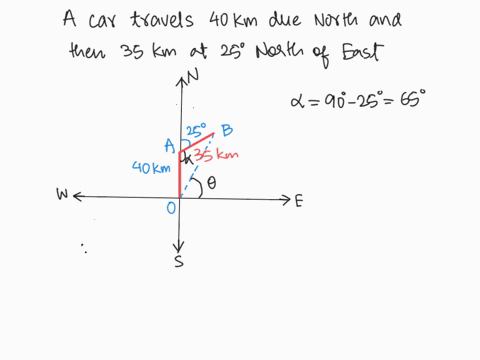 A car travels 40 km due North and
then 35 km at 25° North of East
N
α = 90° - 25° = 65°
25° B
A
α 35 km
40 km
θ
W
E
O
S
∴